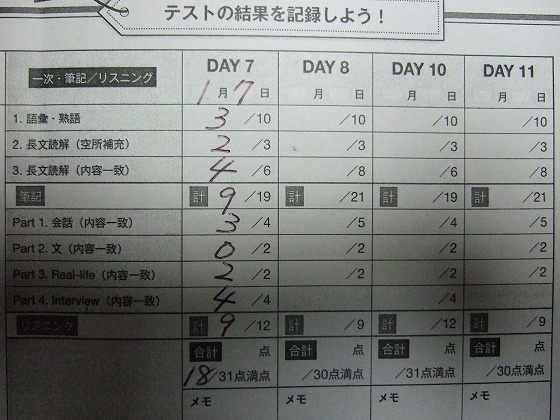 テストの結果を記録しよう!
一次・筆記/リスニング DAY 7 DAY 8 DAY 10 DAY 11
1月7日 月 日 月 日 月 日
1. 語彙・熟語 3/10 /10 /10 /10
2. 長文読解(空所補充) 2/3 /3 /3 /3
3. 長文読解(内容一致) 4/6 /8 /6 /8
筆記 計 9/19 計 /21 計 /19 計 /21
Part 1. 会話(内容一致) 3/4 /5 /4 /5
Part 2. 文(内容一致) 0/2 /2 /2 /2
Part 3. Real-life(内容一致) 2/2 /2 /2 /2
Part 4. Interview(内容一致) 4/4 /4
リスニング 計 9/12 計 /9 計 /12 計 /9
合計 点 合計 点 合計 点 合計 点
18/31点満点 /30点満点 /31点満点 /30点満点
メモ メモ メモ メモ